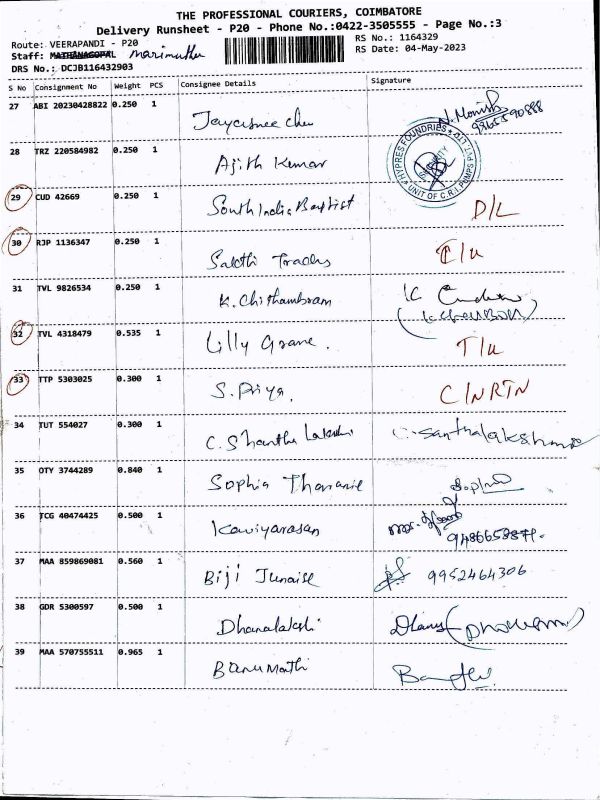 THE PROFESSIONAL COURIERS, COIMBATORE
Delivery Runsheet - P20 - Phone No.:0422-3505555 - Page No.:3
Route: VEERAPANDI - P20 RS No.: 1164329
Staff: MATHANAGOPAL Marimuthu RS Date: 04-May-2023
DRS No.: DCJB116432903
S No Consignment No Weight PCS Consignee Details Signature
27 ABI 20230428822 0.250 1 N. Monish
9865590888
28 TRZ 220584982 0.250 1 Ajith Kumar
HYPRES FOUNDRIES
SECURITY
UNIT OF C.R.I. PUMPS PVT LTD
29 CUD 42669 0.250 1 South India Baptist D/L
30 RJP 1136347 0.250 1 Sakthi Traders
31 TVL 9826534 0.250 1 K. Chithambram K
32 TVL 4318479 0.535 1 Lilly Grane. T/u
33 TTP 5303025 0.300 1 S. Priya. C/N RTN
34 TUT 554027 0.300 1 C. Shantha Lakshmi C. Santhalakshmi
35 OTY 3744289 0.840 1 Sophia
36 TCG 40474425 0.500 1 Kaviyarasan
37 MAA 859869081 0.560 1 Biji Junaise 9952464306
38 GDR 5300597 0.500 1 Dhanalakshi
39 MAA 570755511 0.965 1 Banu Mathi